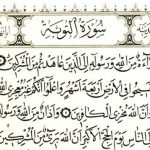 سُورَةُ التَّوْبَةِ
مِنَ اللَّهِ وَرَسُولِهِ إِلَى الَّذِينَ عَاهَدتُّم مِّنَ الْمُشْرِكِينَ
فِي الْأَرْضِ أَرْبَعَةَ أَشْهُرٍ وَاعْلَمُوا أَنَّكُمْ
اللَّهَ مُخْزِي الْكَافِرِينَ وَأَذَانٌ مِّنَ اللَّهِ وَرَسُو
النَّاسِ يَوْمَ الْحَجِّ الْأَكْبَرِ أَنَّ اللَّهَ بَرِيءٌ مِّنَ الْمُشْرِكِينَ